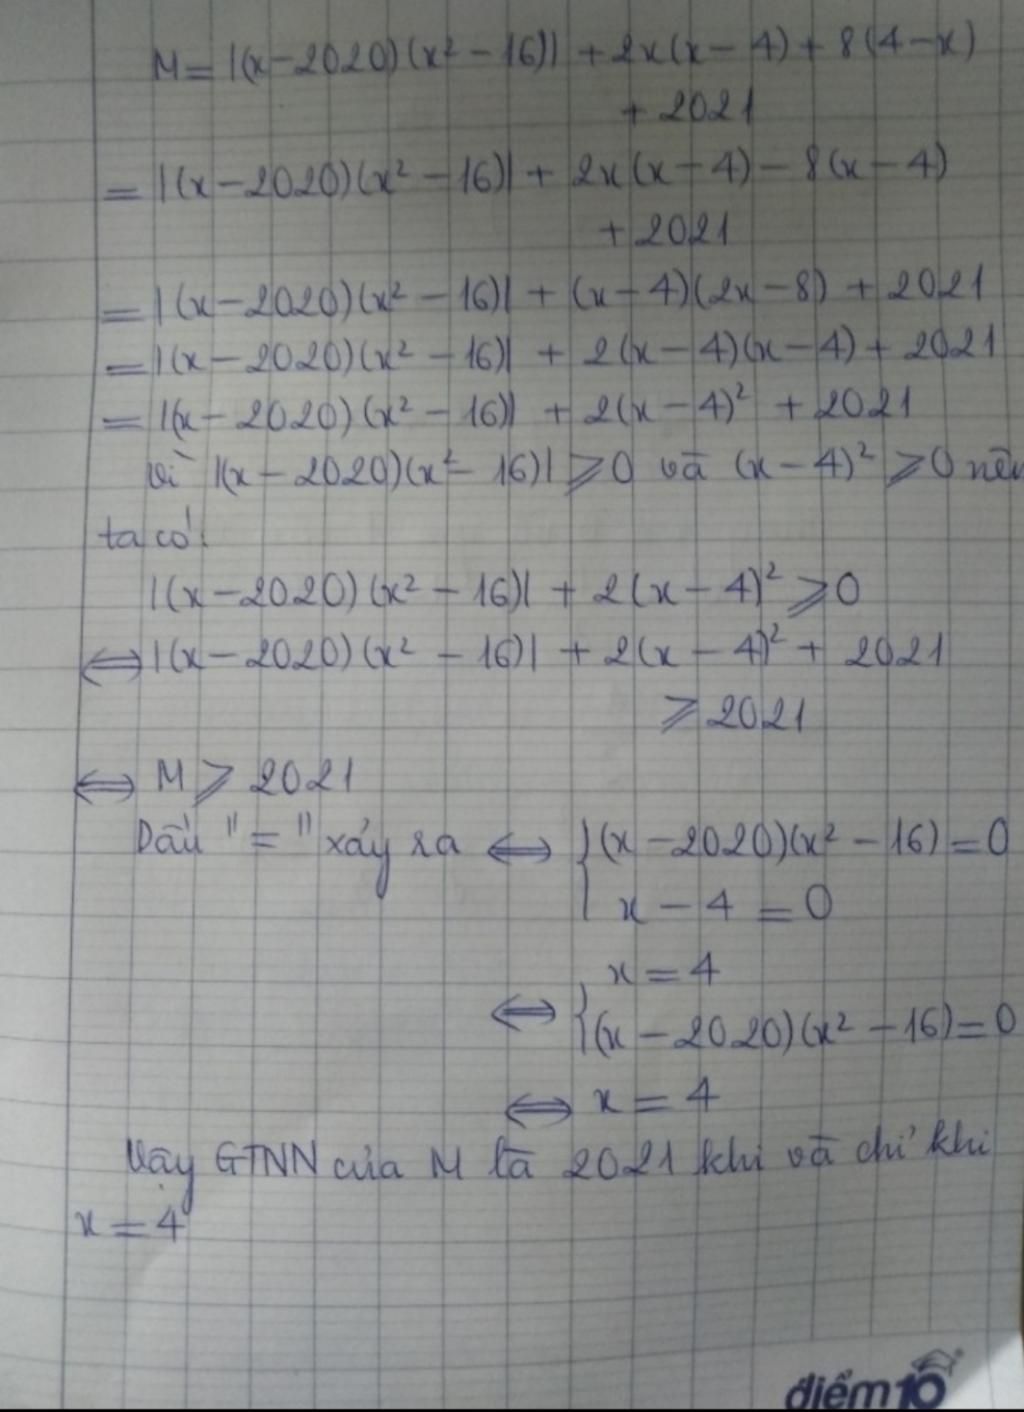 M = |(x-2020)(x² - 16)| + 2x(x - 4) + 8(4-x)
+ 2021
= |(x-2020)(x² - 16)| + 2x(x - 4) - 8(x - 4)
+ 2021
= |(x-2020)(x² - 16)| + (x - 4)(2x - 8) + 2021
= |(x - 2020)(x² - 16)| + 2(x - 4)(x - 4) + 2021
= |(x - 2020)(x² - 16)| + 2(x - 4)² + 2021
Vì |(x - 2020)(x² - 16)| ⩾ 0 và (x - 4)² ⩾ 0 nên
ta có:
|(x - 2020)(x² - 16)| + 2(x - 4)² ⩾ 0
⇔ |(x - 2020)(x² - 16)| + 2(x - 4)² + 2021
⩾ 2021
⇔ M ⩾ 2021
Dấu "=" xảy ra ⇔ { (x - 2020)(x² - 16) = 0
x - 4 = 0
x = 4
⇔ { (x - 2020)(x² - 16) = 0
⇔ x = 4
Vậy GTNN của M là 2021 khi và chỉ khi
x = 4
điểm10